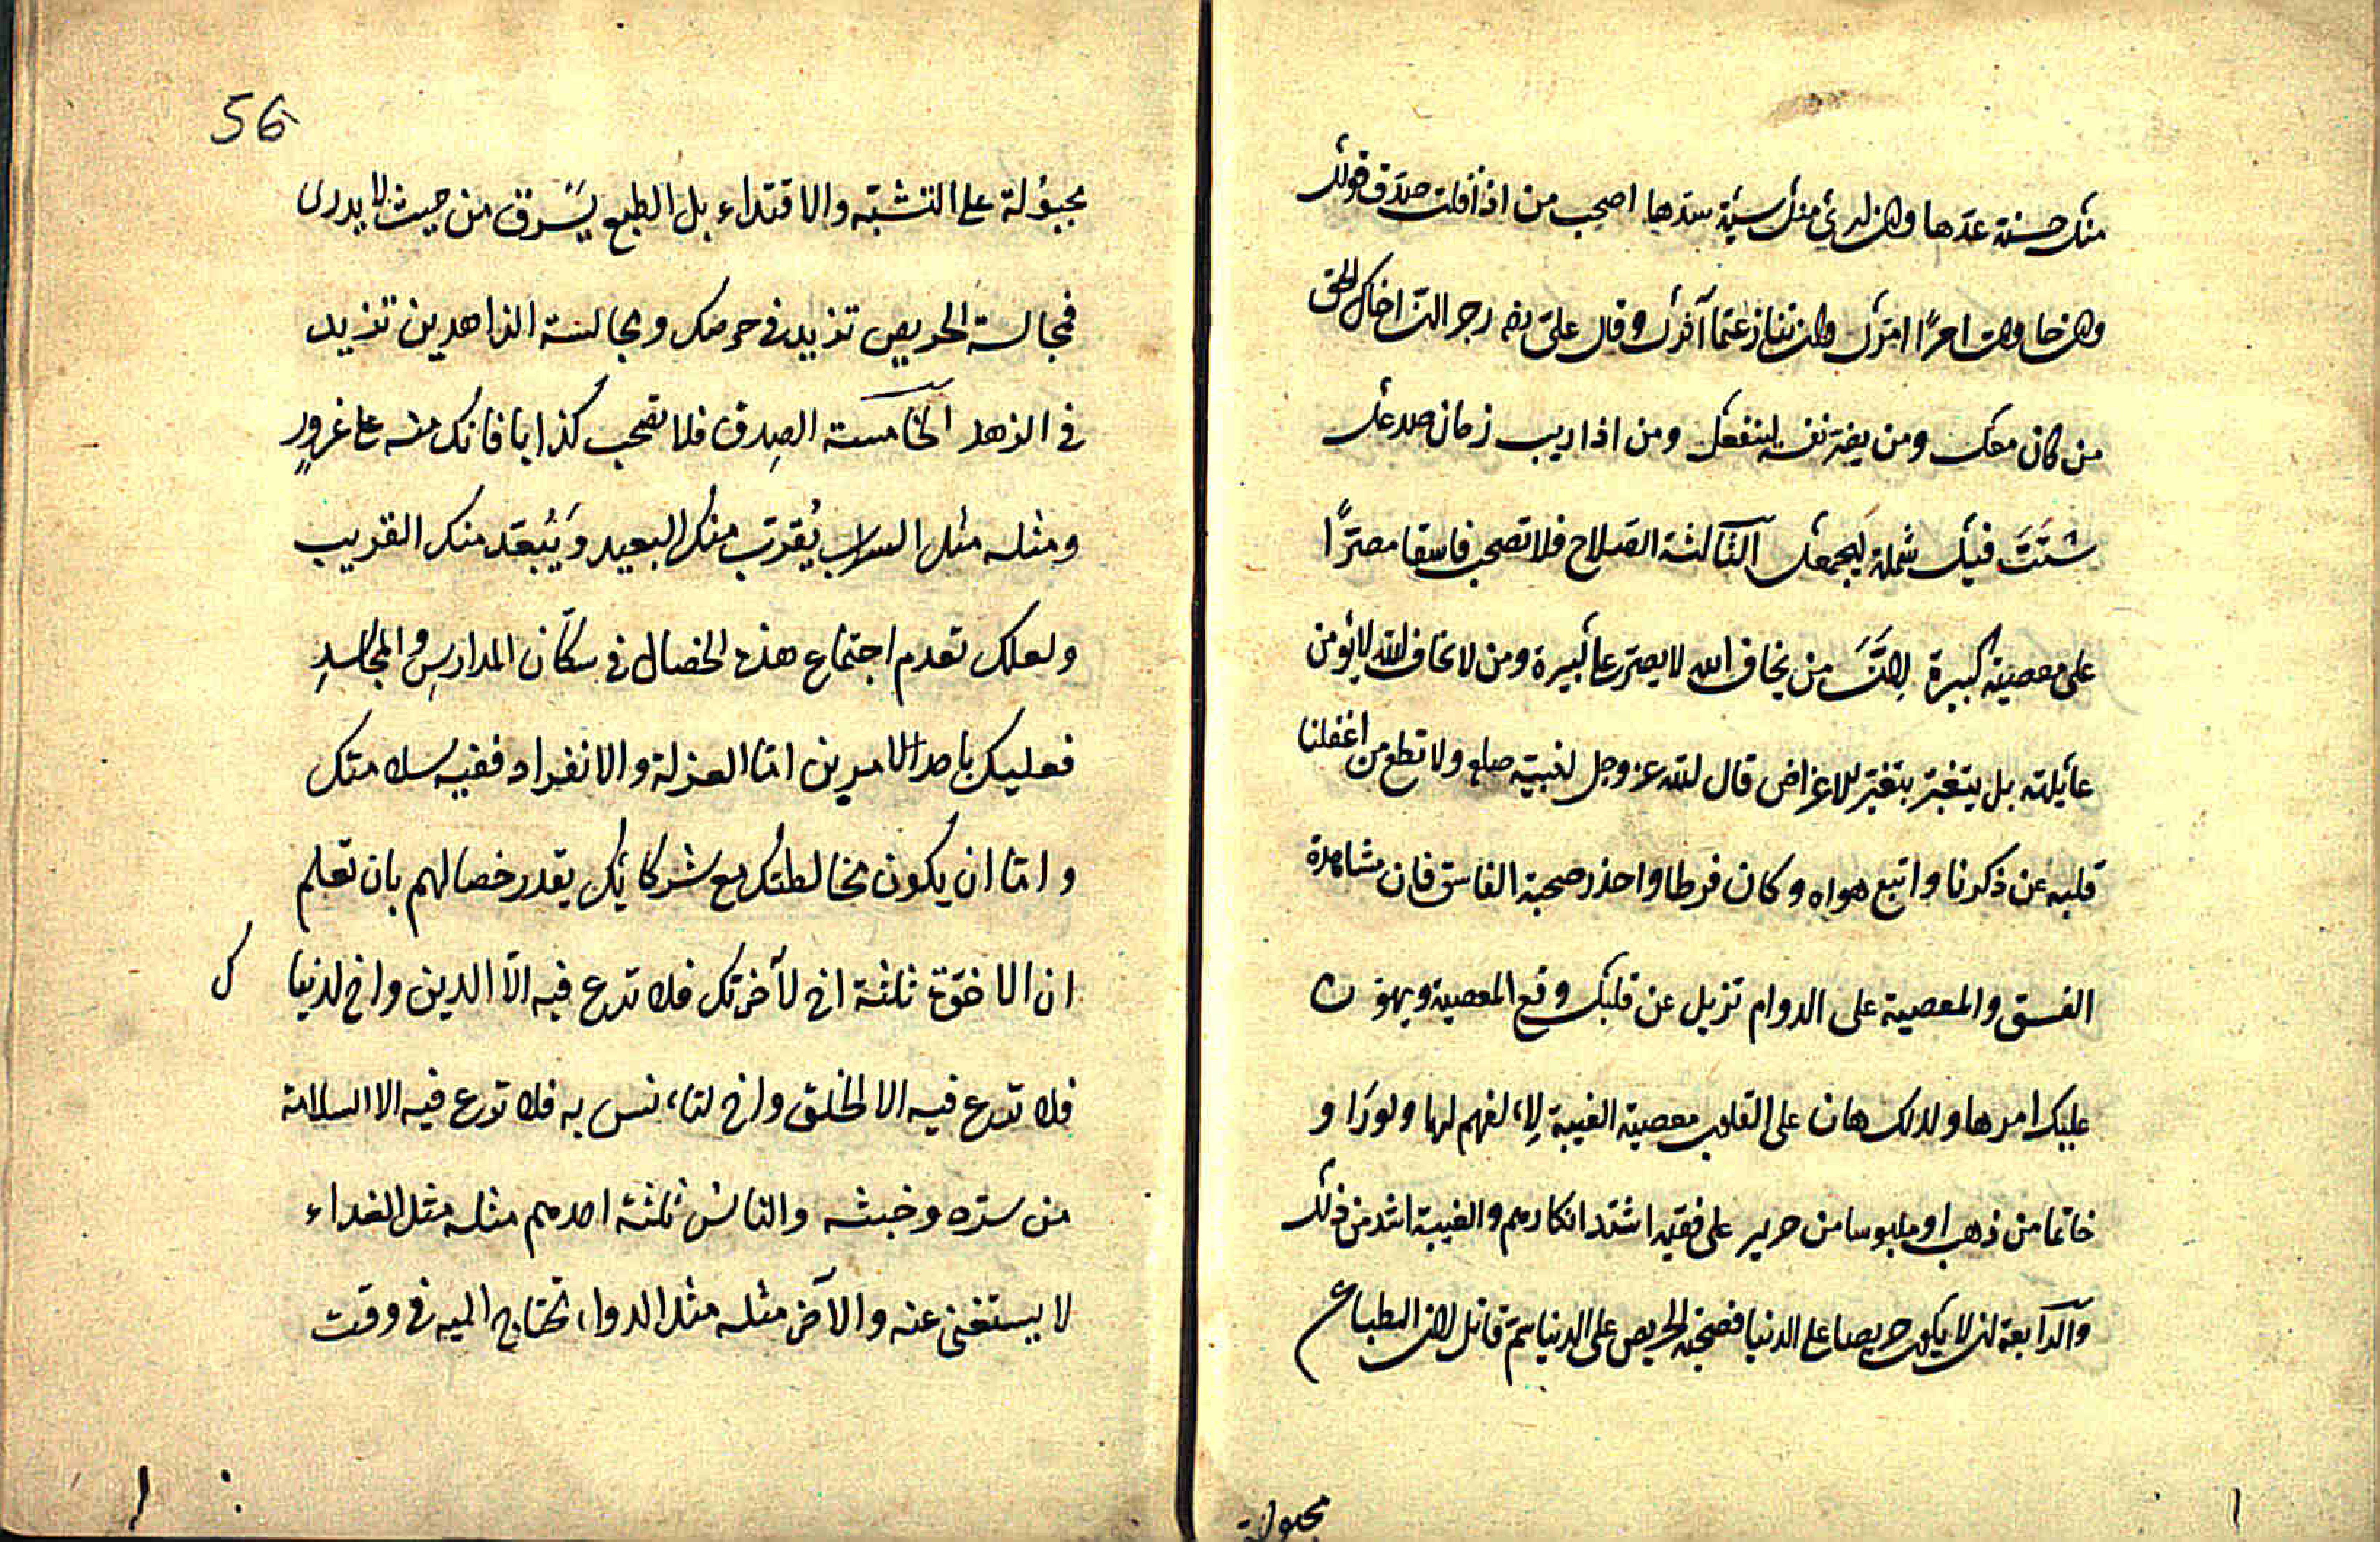 منك حسنة عدّها وان رأى منك سيئة سدّها اصحب من اذا قلت صدّق قولك
وان حاولت امرًا امّرك وان تنازعتما آثرك وقال علىّ رضه رجز انّ اخاك الحق
من كان معك ومن يضرّ نفسه لينفعك ومن اذا ريب زمان صدعك
شَتَّتَ فيك شمله ليجمعك الثالثة الصلاح فلا تصحب فاسقا مصرًّا
على معصية كبيرة لانَّ من يخاف الله لا يصرّ على كبيرة ومن لا يخاف الله لا يؤمن
غايلته بل يتغيّر بتغيّر للاغراض قال الله عز وجل لنبيّه صلعم ولا تطع من اغفلنا
قلبه عن ذكرنا واتبع هواه وكان فرطا واحذر صحبة الفاسق فان مشاهدة
الفسق والمعصية على الدوام تزيل عن قلبك وقع المعصية ويهوّن
عليك امرها ولذلك هان على القلوب معصية الغيبة لإلفهم لها ولو رَاَو
خاتما من ذهب او ملبوسا من حرير على فقيه اشتد انكارهم والغيبة اشد من ذلك
والرابعة ان لا يكون حريصا على الدنيا فصحبة الحريص على الدنيا سمّ قاتل لان الطباع
مجبولة
56
مجبؤلة على التشبّه والاقتداء بل الطبع يَسْرق من حيث لا يدرى
فمجالسة الحريص تزيد فى حرصك ومجالسة الزاهدين تزيد
فى الزهد الخامسة الصِدق فلا تصحب كذابا فانك منه على غرورٍ
ومثله مثل السراب يُقرّب منك البعيد وَيُبَعّد منك القريب
ولعلك تعدم اجتماع هذه الخصال فى سكّان المدارسِ والمجاسدِ
فعليك باحد الامرين امّا العزلة والانفراد ففيه سلامتك
وامّا ان يكون مخالطتك مع شركائك بقدر خصالهم بان تعلم
ان الاخوّة ثلثة اخ لآخرتك فلا تدرع فيه الّا الدين واخ لدنيا ك
فلا تدرع فيه الا الخلق واخ لتاءنس به فلا تدرع فيه الا السلامة
من سرّه وخبثه والناس ثلثة احدهم مثله مثل الغداء
لا يستغنى عنه والآخر مثله مثل الدواء تحتاج اليه فى وقت